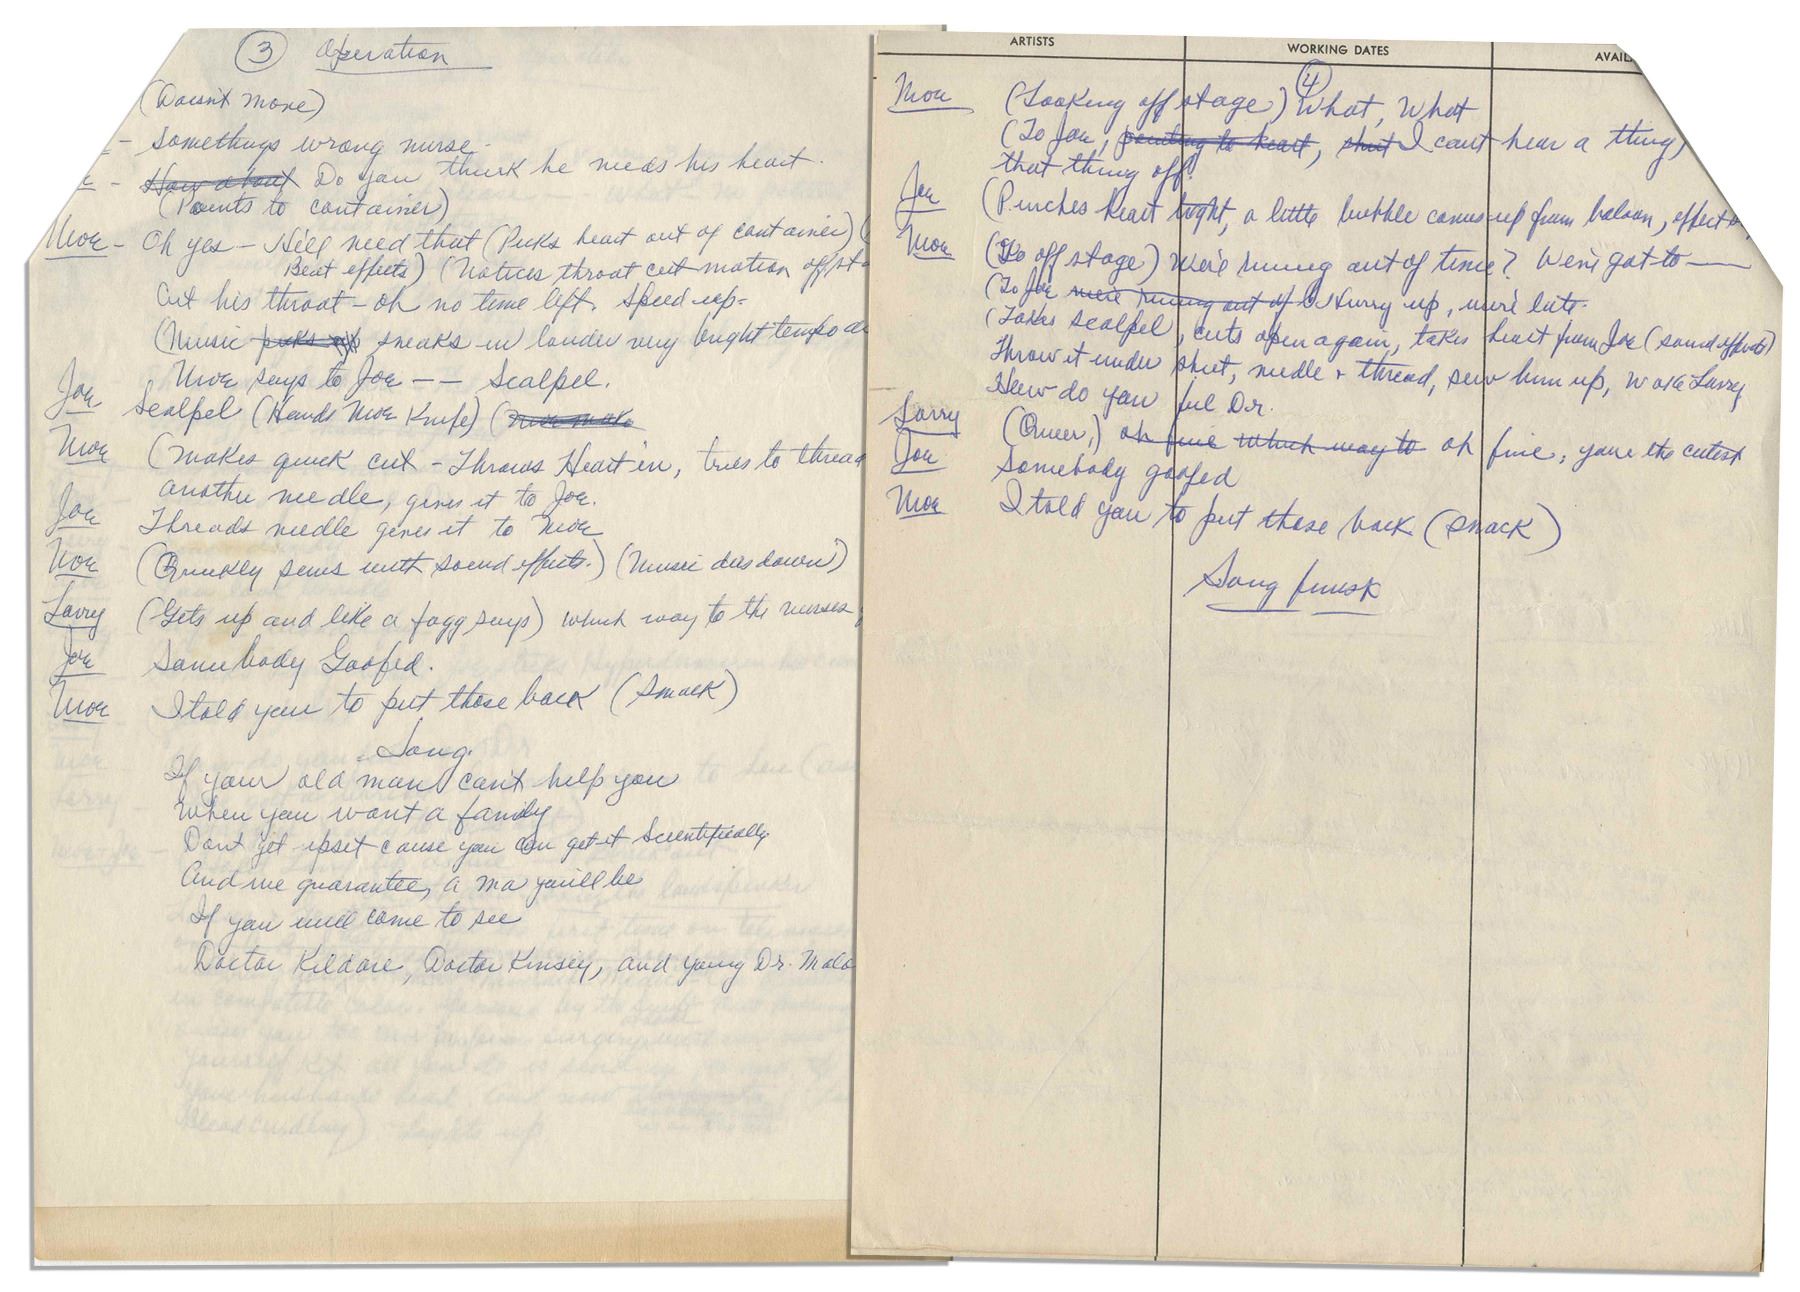 3 Operation
(Doesn't move)
- Somethings wrong nurse.
- How about Do you think he needs his heart.
(Points to container)
Moe - Oh yes - He'll need that (Picks heart out of container) (
Beat effects) (Notices throat cut motion off sta
Cut his throat - oh no time left. Speed up -
(Music picks up sneaks in louder very bright tempo
Moe says to Joe -- Scalpel.
Joe Scalpel (Hands Moe Knife) (
Moe (Makes quick cut - Throws Heart in, tries to thread
another needle, gives it to Joe.
Joe Threads needle gives it to Moe
Moe (Quickly sews with sound effects.) (Music dies down)
Larry (Gets up and like a fagg says) which way to the nurses
Joe Somebody Goofed.
Moe I told you to put those back (Smack)
Song.
If your old man can't help you
When you want a family
Don't get upset cause you can get it Scientifically
And we guarantee, a ma you'll be
If you will come to see
Doctor Kildare, Doctor Kinsey, and young Dr. Malo
ARTISTS WORKING DATES AVAIL
4
Moe (Looking off stage) What, What
(To Joe, pointing to heart, shut I can't hear a thing,
that thing off.
Joe (Pinches heart tight, a little bubble comes up from baloon, effect
Moe (To off stage) We're runing out of time? We've got to ——
(To Joe were runing out of Hurry up, we're late.
(Takes scalpel, cuts open again, takes heart from Joe (sound effects)
Throw it under shirt, needle + thread, sew him up, wake Larry
How do you feel Dr.
Larry (Queer,) oh fine which way to oh fine, you're the cutest
Joe Somebody goofed
Moe I told you to put those back (smack)
Song finish